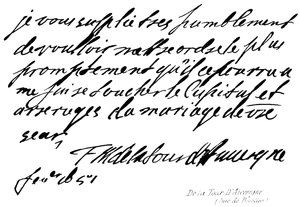 je vous suplie tres humblement
de vouloir
promptement qu'il ce pourra
me faire toucher le Capital et
arrerages du mariage de
F M de la Tour d'Auvergne
De la Tour D'Auvergne.
(Duc de Bouillon)